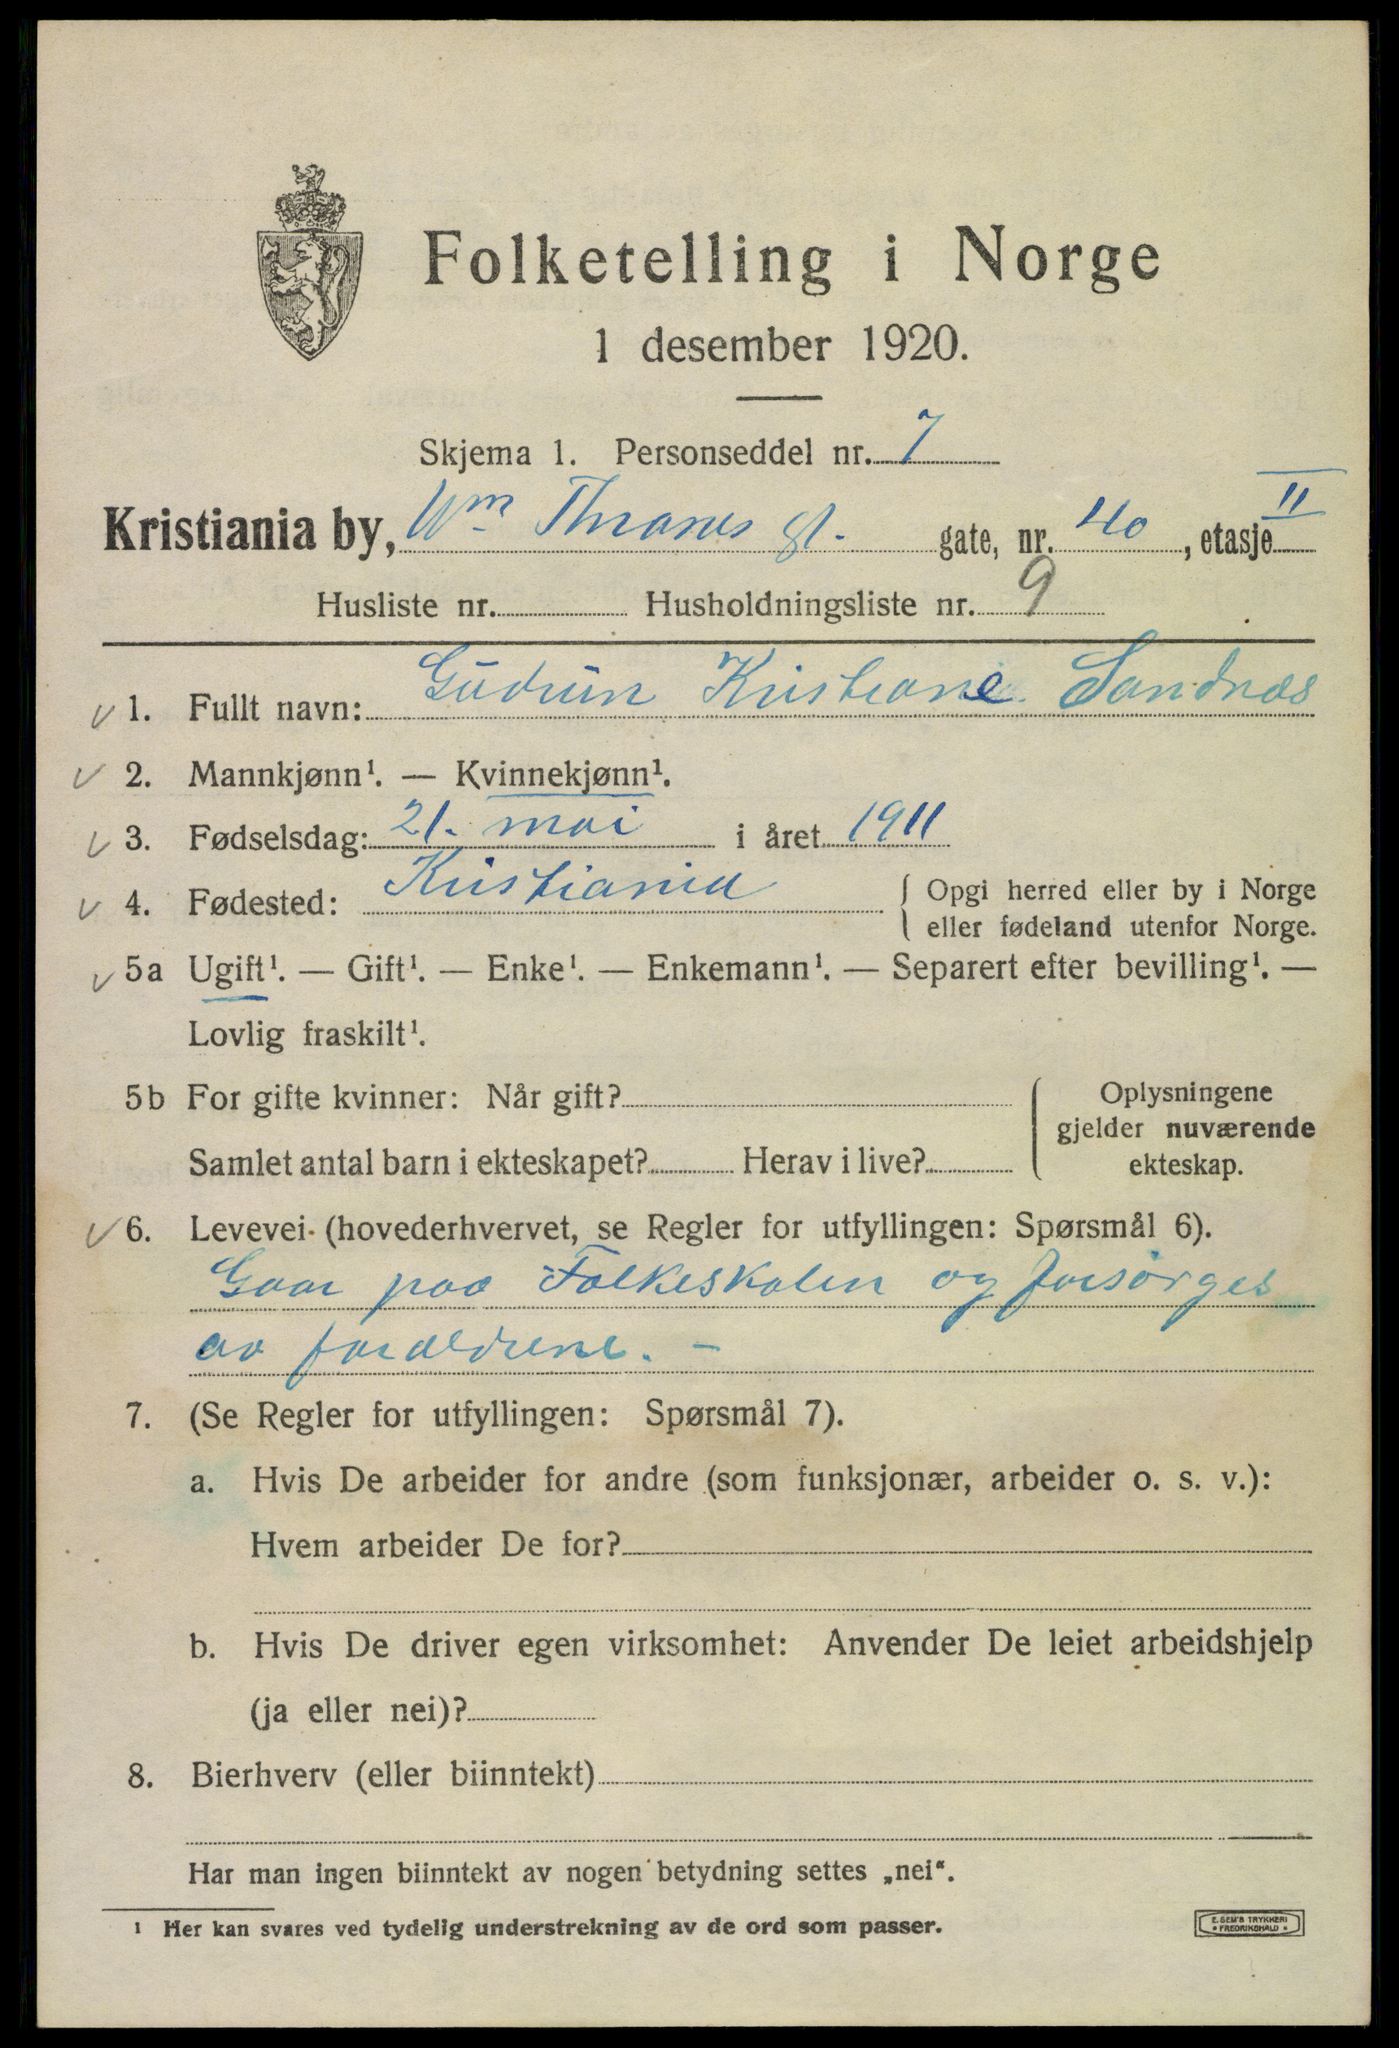 Folketelling i Norge
1 desember 1920.
Skjema 1. Personseddel nr. 7
Kristiania by, Wm Thranes gt. gate, nr. 40, etasje II
Husliste nr. Husholdningsliste nr. 9
√ 1. Fullt navn: Gudrun Kristiane Sandnæs
√ 2. Mannkjønn¹. — Kvinnekjønn¹.
√ 3. Fødselsdag: 21. mai i året 1911
√ 4. Fødested: Kristiania { Opgi herred eller by i Norge
eller fødeland utenfor Norge.
√ 5a Ugift¹. — Gift¹. — Enke¹. — Enkemann¹. — Separert efter bevilling¹. —
Lovlig fraskilt¹.
5b For gifte kvinner: Når gift? { Oplysningene
gjelder nuværende
Samlet antal barn i ekteskapet? Herav i live? ekteskap.
√ 6. Levevei (hovederhvervet, se Regler for utfyllingen: Spørsmål 6).
Gaar paa Folkeskolen og forsørges
av forældrene. -
7. (Se Regler for utfyllingen: Spørsmål 7).
a. Hvis De arbeider for andre (som funksjonær, arbeider o. s. v.):
Hvem arbeider De for?
b. Hvis De driver egen virksomhet: Anvender De leiet arbeidshjelp
(ja eller nei)?
8. Bierhverv (eller biinntekt)
Har man ingen biinntekt av nogen betydning settes „nei“.
¹ Her kan svares ved tydelig understrekning av de ord som passer.
E. SEM'S TRYKKERI
• FREDRIKSHALD •